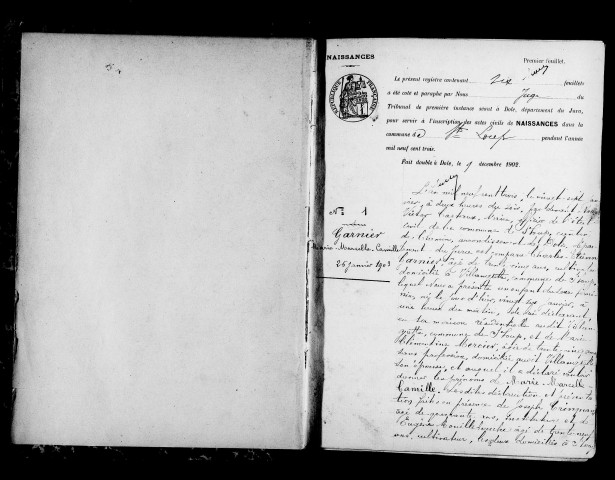 NAISSANCES
Premier feuillet.
Le présent registre contenant dix feuillets
a été coté et paraphé par Nous Juge du
Tribunal de première instance séant à Dole, département du Jura,
pour servir à l'inscription des actes civils de NAISSANCES dans la
commune de St Loup pendant l'année
mil neuf cent trois.
Fait double à Dole, le 9 décembre 1902.
RÉPUBLIQUE FRANÇAISE
N° 1
Garnier
Marie-Marcelle-Camille
26 janvier 1903
L'an mil neuf cent trois, le vingt sept
à deux heures du soir, par devant
Maire, officier de l'état
civil de la commune de St Loup, canton
de Chemin, arrondissement de Dole, dépar
tement du Jura est comparu Charles Etienne
Garnier, âgé de trente cinq ans, cultivateur
domicilié à commune de St Loup,
lequel Nous a présenté un enfant du sexe fémi
nin, né le jour d'hier, vingt six janvier, à
une heure du matin, de lui déclarant,
en sa maison
commune de St Loup, et de Marie
Clémentine Mercier, âgée de trente
sans profession, domiciliée
son épouse, et auquel il a déclaré vouloir
donner les prénoms de Marie-Marcelle-
Camille. Lesdites déclaration et présenta
tion faites en présence de Joseph
âgé de cinquante ans, et de
Eugène âgé de trente neuf
ans, cultivateur, tous deux domiciliés à St Loup